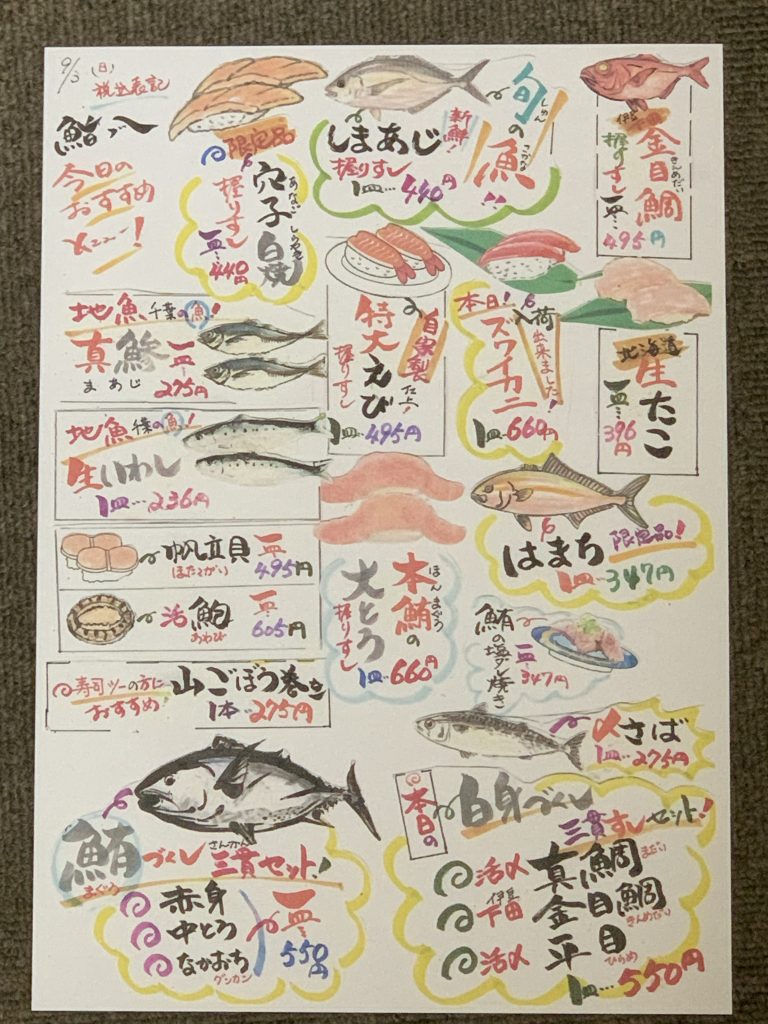 9/3(日)
税込表記
鮨
今日の
おすすめ
メニュー!
限定品
穴子白焼
あなご しらやき
握りすし
一皿…440円
新鮮!
しまあじ
握りすし
1皿…440円
旬の魚!!
しゅん さかな
伊豆
金目鯛
きんめだい
握りすし
一皿…495円
地魚 千葉の魚!
真鯵
まあじ
一皿…275円
自家製 仕上
特大えび
握りすし
1皿…495円
本日!
入荷出来ました!
ズワイカニ
1皿…660円
北海道
生たこ
一皿…396円
地魚 千葉の魚!
生いわし
1皿…236円
はまち 限定品!
1皿…347円
帆立貝
ほたてがい
一皿…495円
活鮑
あわび
一皿…605円
本鮪の
ほんまぐろ
大とろ
握りすし
1皿…660円
鮪の塩タレ焼き
一皿…347円
寿司ツーの方に
おすすめ
山ごぼう巻き
1本…275円
〆さば
1皿…275円
鮪づくし三貫セット!
まぐろ さんかん
赤身
中とろ
なかおち
グンカン
一皿…550円
本日の
白身づくし
三貫すしセット!
活〆 真鯛
まだい
伊豆
下田 金目鯛
きんめだい
活〆 平目
ひらめ
1皿…550円